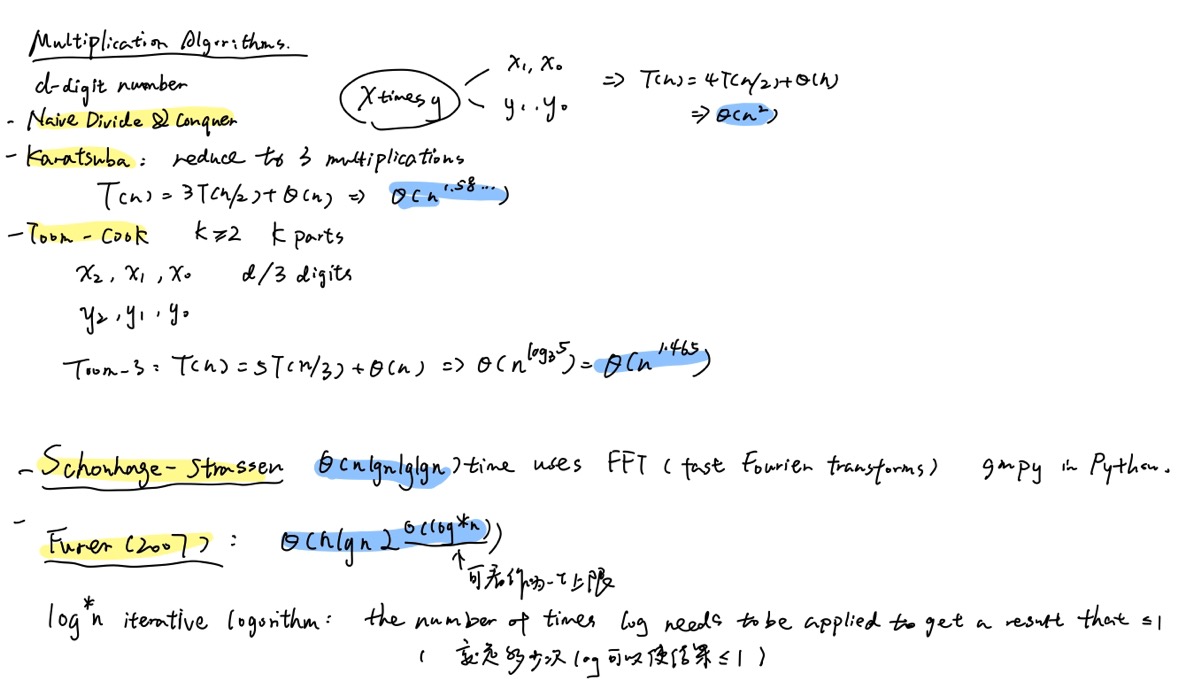 Multiplication Algorithms.
d-digit number
x times y
x₁, x₀
y₁, y₀
=> T(n) = 4T(n/2) + θ(n)
=> θ(n²)
- Naive Divide & Conquer
- Karatsuba: reduce to 3 multiplications
T(n) = 3T(n/2) + θ(n) => θ(n^1.58...)
- Toom-Cook k≥2 k parts
x₂, x₁, x₀ d/3 digits
y₂, y₁, y₀
Toom-3: T(n) = 5T(n/3) + θ(n) => θ(n^log₃5) = θ(n^1.465)
- Schonhage-Strassen θ(n lgn lglgn) time uses FFT (fast Fourien transforms) gmpy in Python.
- Furer (2007): θ(n lg n 2^θ(log*n))
↑
可看作为一个上限
log*n iterative logorithm: the number of times log needs to be applied to get a result that ≤1
( 求多少次log可以使结果≤1 )